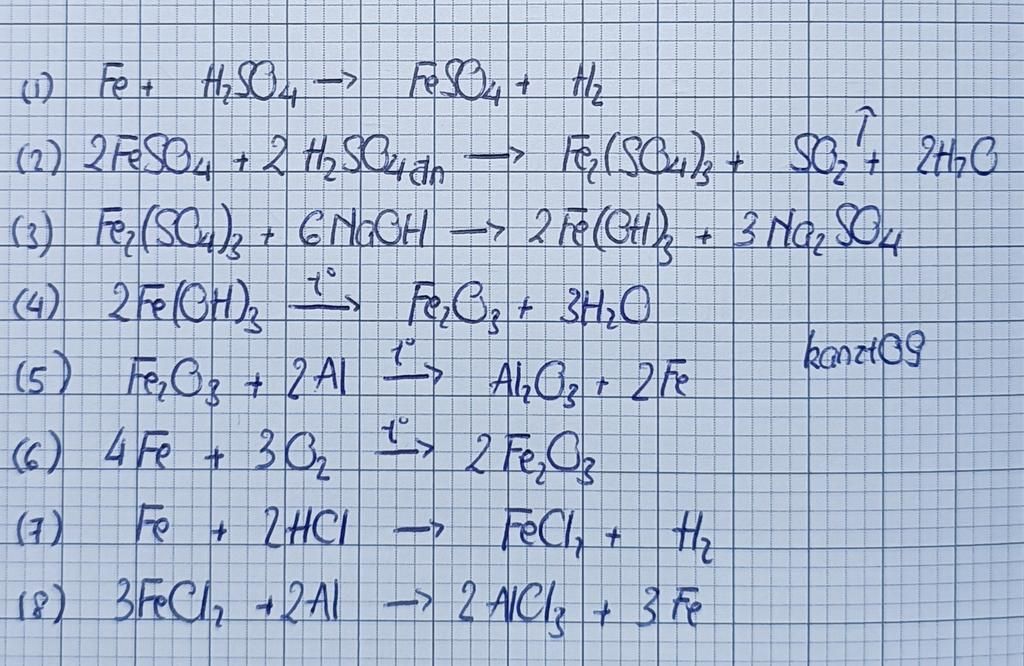 (1) Fe + H₂SO₄ → FeSO₄ + H₂
(2) 2FeSO₄ + 2H₂SO₄đn → Fe₂(SO₄)₃ + SO₂↑ + 2H₂O
(3) Fe₂(SO₄)₃ + 6NaOH → 2Fe(OH)₃ + 3Na₂SO₄
(4) 2Fe(OH)₃ —t°→ Fe₂O₃ + 3H₂O
kanzt09
(5) Fe₂O₃ + 2Al —t°→ Al₂O₃ + 2Fe
(6) 4Fe + 3O₂ —t°→ 2Fe₂O₃
(7) Fe + 2HCl → FeCl₂ + H₂
(8) 3FeCl₂ + 2Al → 2AlCl₃ + 3Fe